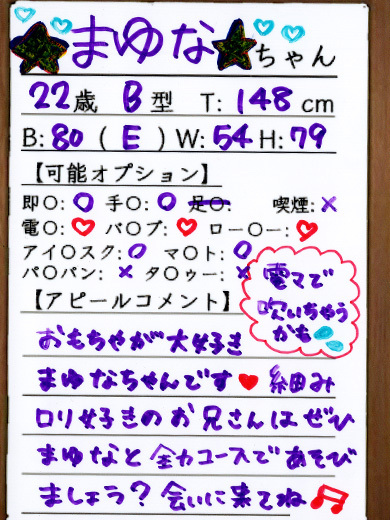 まゆなちゃん
22歳 B型 T:148cm
B:80(E)W:54H:79
【可能オプション】
即〇:〇 手〇:〇 足〇: 喫煙:×
電〇:♡ バ〇ブ:♡ ロー〇ー:♡
アイ〇スク:〇 マ〇ト:〇
パ〇パン:× タ〇ゥー:×
【アピールコメント】
電マで
吹いちゃう
かも
おもちゃが大好き
まゆなちゃんです♥ 細み
ロリ好きのお兄さんはぜひ
まゆなと全力コースであそび
ましょう?会いに来てね♫